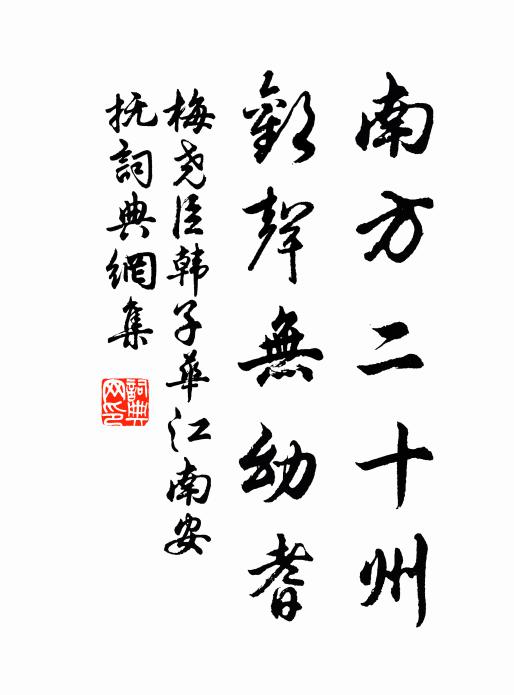 南方二十州
歡聲無幼耆
梅尧臣韩子華江南安
抚詞典網集
詞典
网印